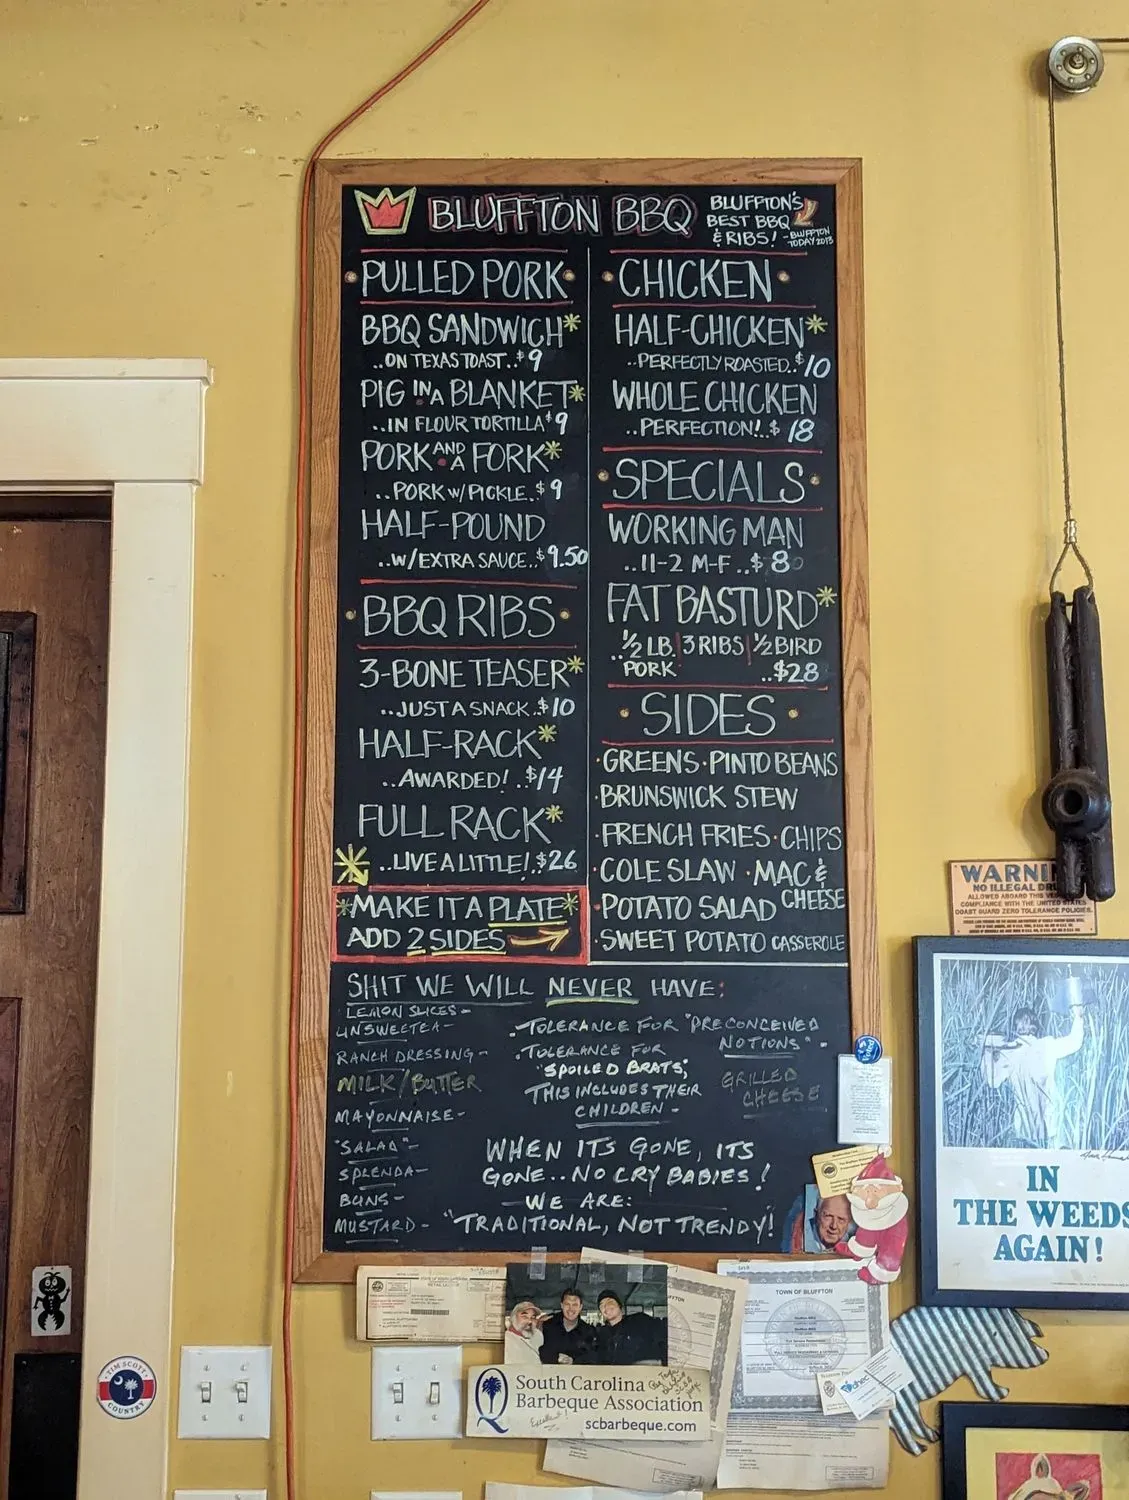 BLUFFTON BBQ
BLUFFTON'S
BEST BBQ
& RIBS!
-BLUFFTON
TODAY 2013
PULLED PORK
BBQ SANDWICH*
..ON TEXAS TOAST..$9
PIG IN A BLANKET*
..IN FLOUR TORTILLA $9
PORK AND A FORK*
..PORK W/PICKLE..$9
HALF-POUND
..W/EXTRA SAUCE..$9.50
BBQ RIBS
3-BONE TEASER*
..JUST A SNACK..$10
HALF-RACK*
..AWARDED!..$14
FULL RACK*
..LIVE A LITTLE!..$26
*MAKE IT A PLATE*
ADD 2 SIDES
CHICKEN
HALF-CHICKEN*
..PERFECTLY ROASTED..$10
WHOLE CHICKEN
..PERFECTION!..$18
SPECIALS
WORKING MAN
..11-2 M-F..$8
FAT BASTURD*
..½ LB. PORK | 3 RIBS | ½ BIRD
..$28
SIDES
·GREENS·PINTO BEANS
·BRUNSWICK STEW
·FRENCH FRIES·CHIPS
·COLE SLAW ·MAC & CHEESE
·POTATO SALAD
·SWEET POTATO CASSEROLE
SHIT WE WILL NEVER HAVE:
LEMON SLICES-
UNSWEETEA-
RANCH DRESSING-
MILK/BUTTER
MAYONNAISE-
"SALAD"-
SPLENDA-
BUNS-
MUSTARD-
.TOLERANCE FOR "PRECONCEIVED
NOTIONS"-
.TOLERANCE FOR
"SPOILED BRATS";
THIS INCLUDES THEIR
CHILDREN-
GRILLED
CHEESE
WHEN ITS GONE, ITS
GONE..NO CRY BABIES!
-WE ARE:
"TRADITIONAL, NOT TRENDY!
WARNING
NO ILLEGAL
ALLOWED ABOARD THIS
COMPLIANCE WITH THE UNITED STATES
COAST GUARD ZERO TOLERANCE POLICIES.
IN
THE WEEDS
AGAIN!
TOWN OF BLUFFTON
South Carolina
Barbeque Association
scbarbeque.com
Excellent!
TIM SCOTT
COUNTRY